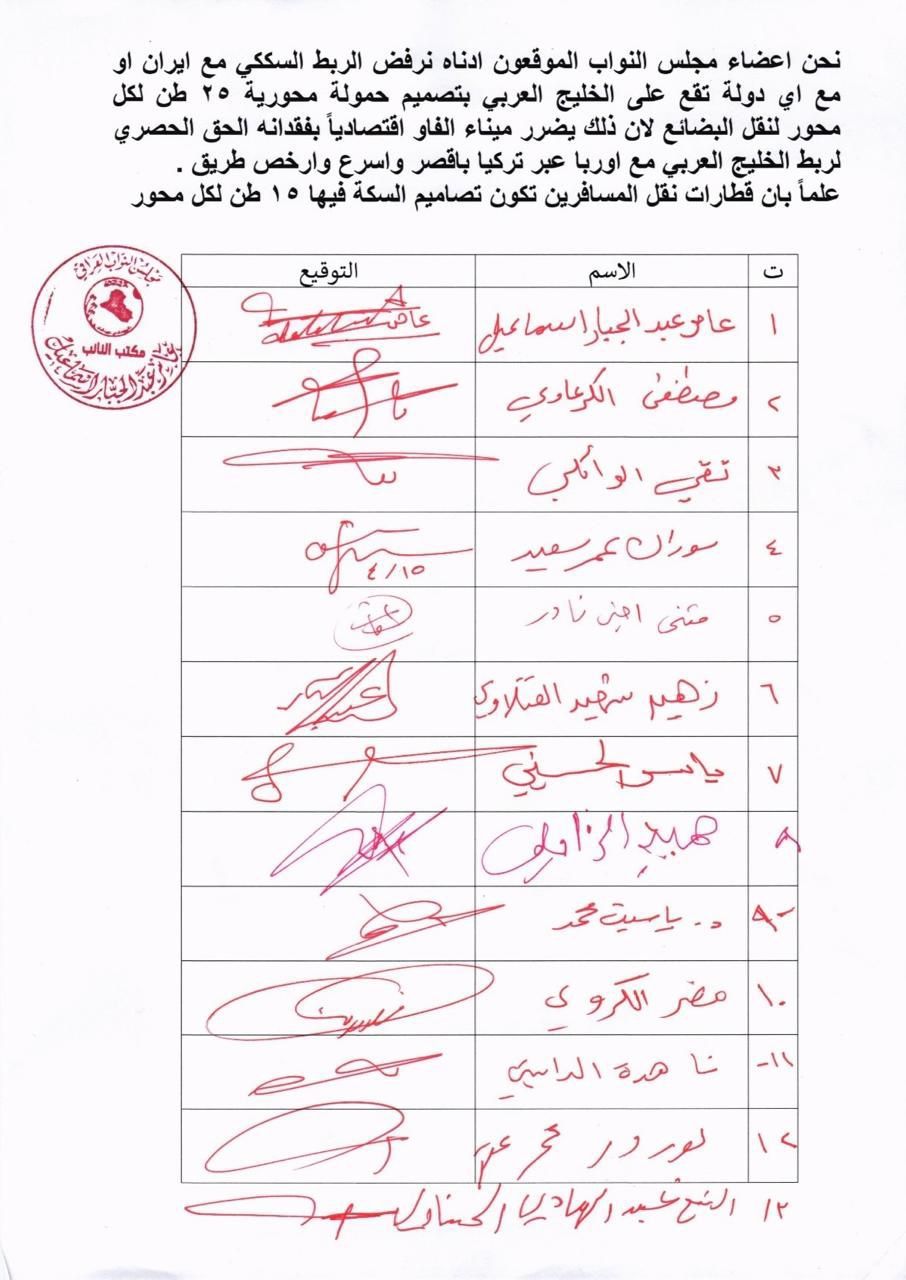 نحن اعضاء مجلس النواب الموقعون ادناه نرفض الربط السككي مع ايران او
مع اي دولة تقع على الخليج العربي بتصميم حمولة محورية ٢٥ طن لكل
محور لنقل البضائع لان ذلك يضرر ميناء الفاو اقتصادياً بفقدانه الحق الحصري
لربط الخليج العربي مع اوربا عبر تركيا باقصر واسرع وارخص طريق .
علماً بان قطارات نقل المسافرين تكون تصاميم السكة فيها ١٥ طن لكل محور
ت الاسم التوقيع
مجلس النواب العراقي
مكتب النائب
عامر عبد الجبار اسماعيل
١ عامر عبد الجبار اسماعيل عامر
٢ مصطفى الكرعاوي
٣ تقي الوائلي
٤ سوران عمر سعيد
٤/١٥
٥ مثنى امين نادر
٦ زهير شهيد الفتلاوي
٧ ياسر الحسيني
٨ الزاملي
٩- د. ياسين محمد
١٠ مضر الكروي
١١- ناهدة الدايني
١٢
١٣ الشيخ عبد الهادي الحسناوي